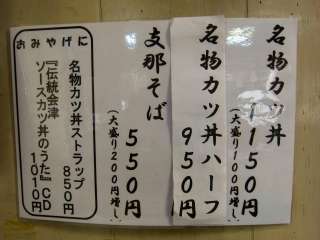 名物カツ丼
1150円
(大盛り100円増し)
名物カツ丼ハーフ
950円
支那そば
550円
(大盛り200円増し)
おみやげに
名物カツ丼ストラップ
850円
『伝統会津
ソースカツ丼のうた』CD
1010円